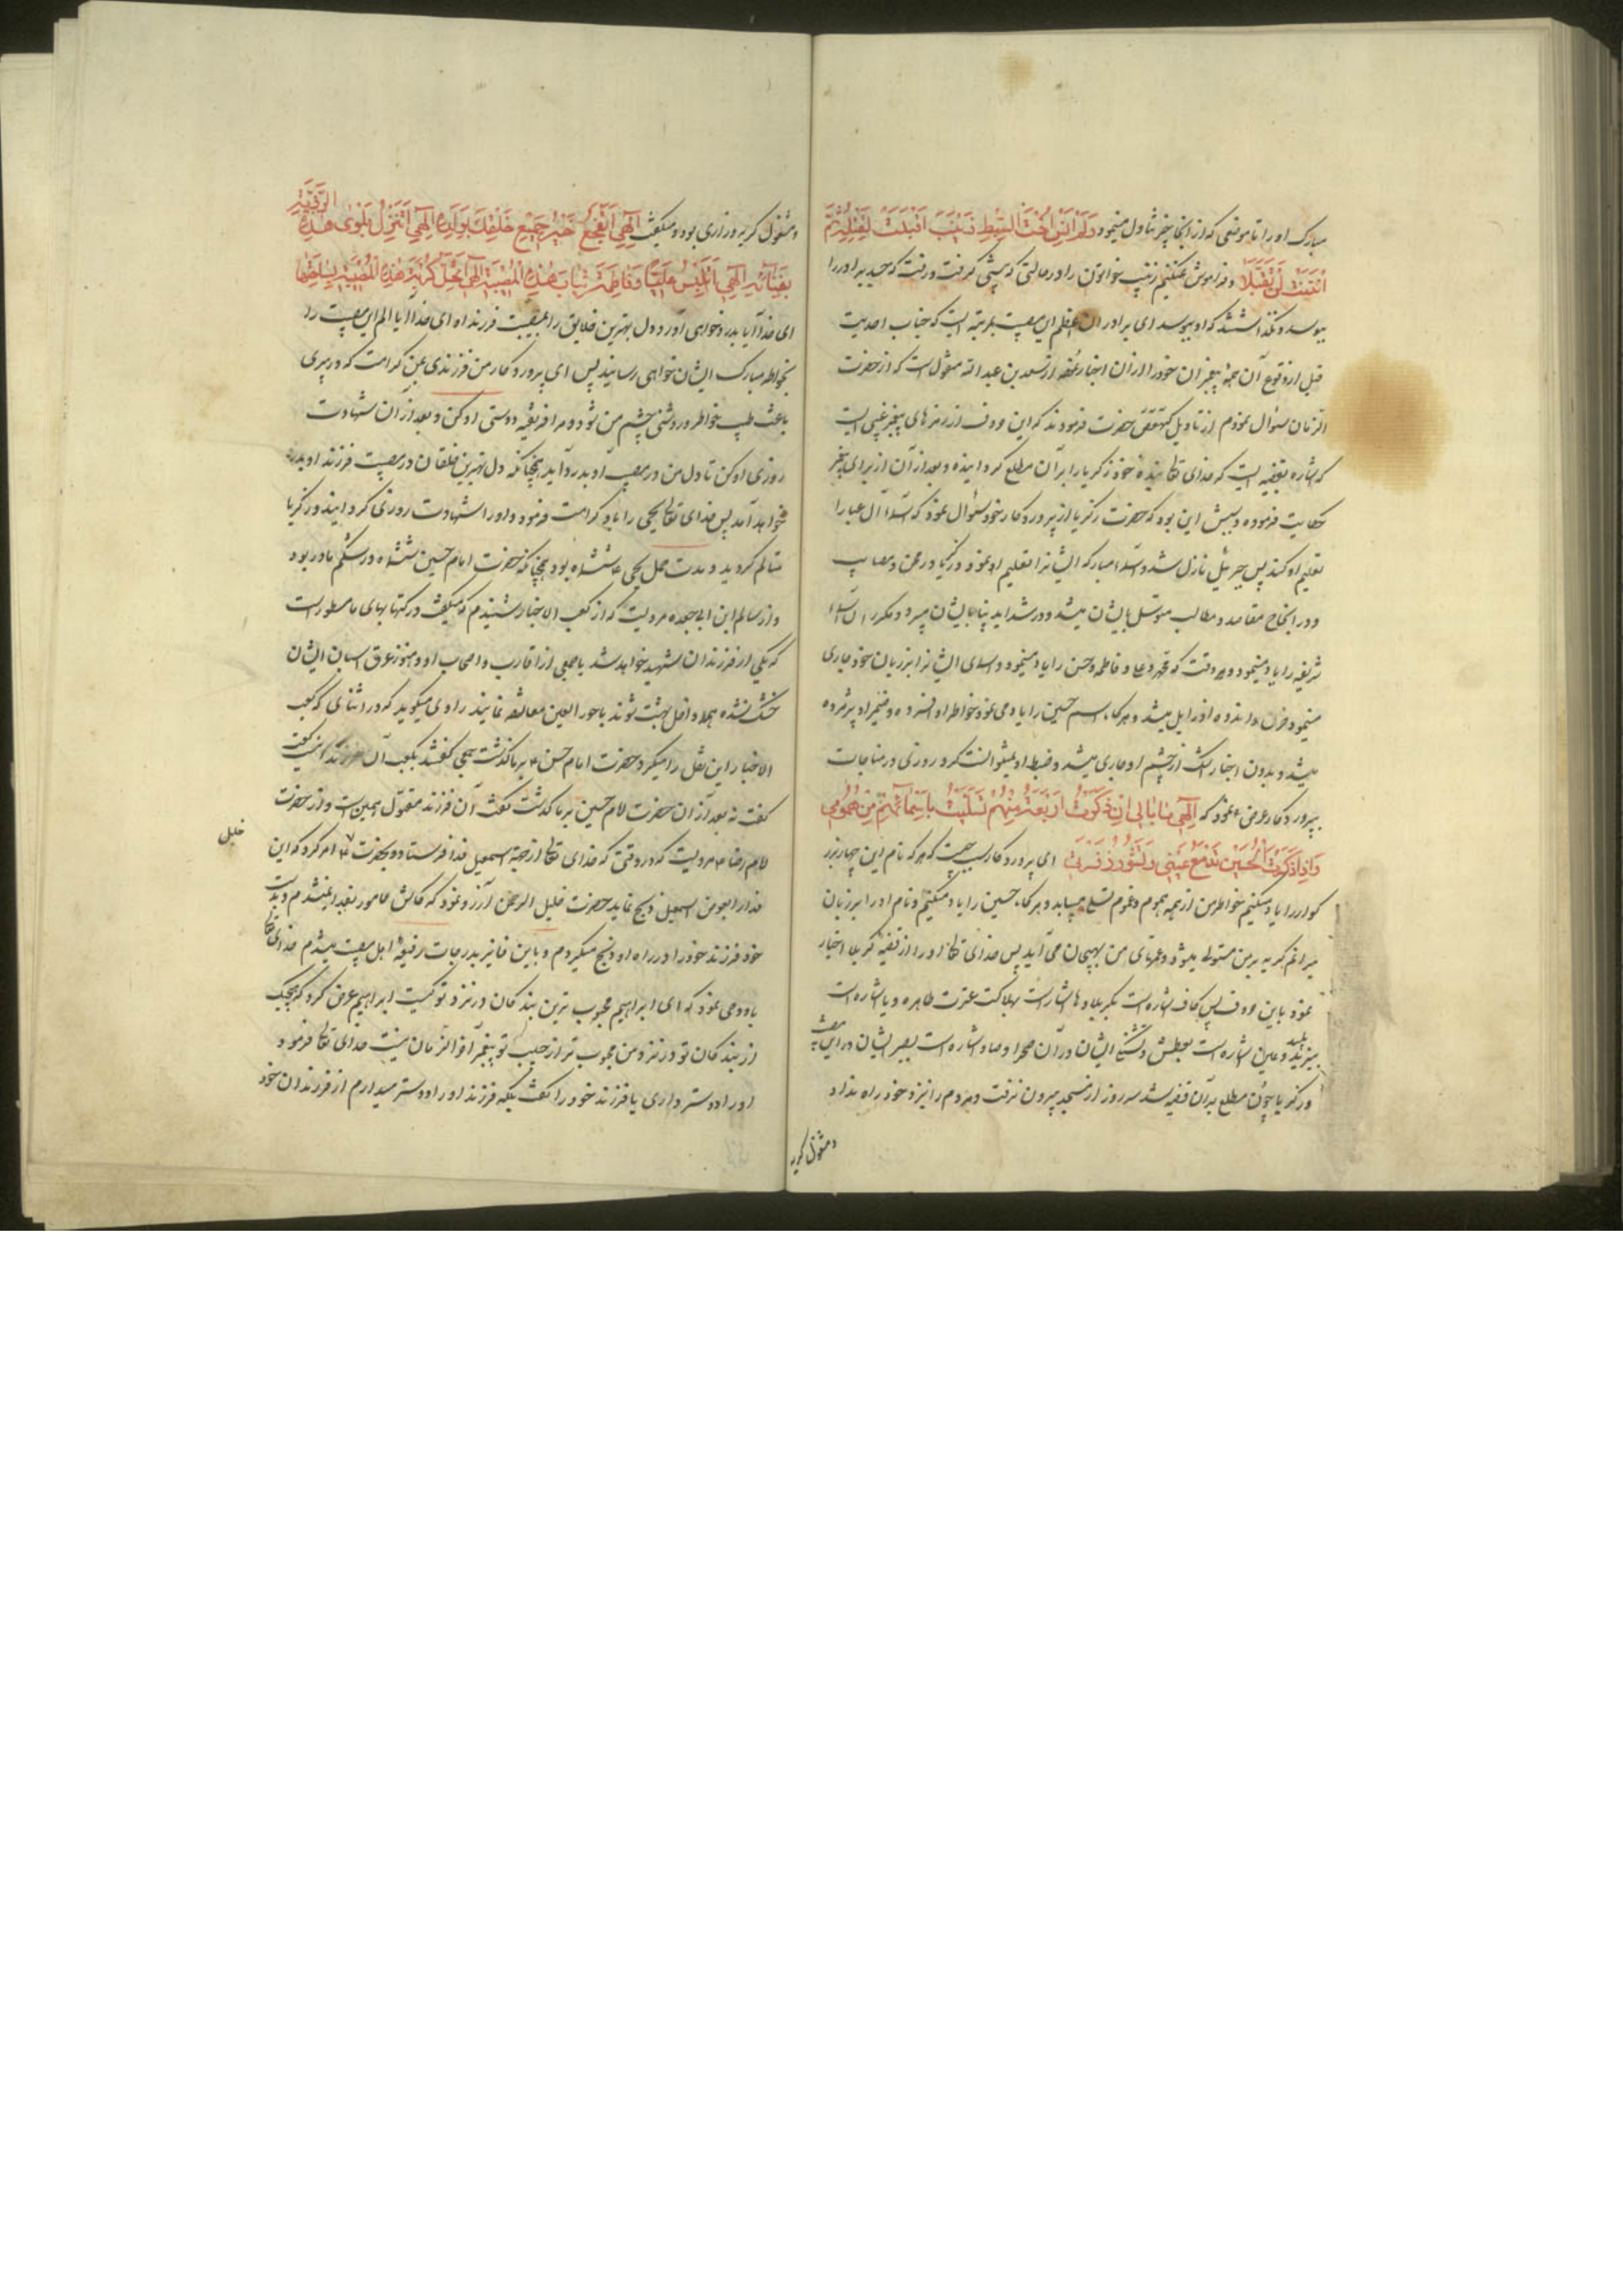 مبارک او را تا موضعی که از آنجا چیز تناول مینمود وَلَم اَنسَ اُختَ السِّبطِ زَینَبَ اَقبَلَت لِتَقبیلِهِ ثُمَّ
انثَنَت لَن تُقَبِّلا و فراموش نمیکنم زینب خواتون را در حالتی که پیش گرفت و رفت که جسد برادر را
ببوسد و نگذاشتند که او ببوسد ای برادران اعظم این مصیبت بلیتی است که جناب احدیت
قبل از وقوع آن جمیع پیغمبران خود را از آن اخبار نموده از سعد بن عبد الله منقول است که از حضرت
الزمان سئوال نمودم از تاویل کهیعص حضرت فرمودند که این حروف از رمزهای پیغمبر غیبی است
که اشاره بقضیه ایست که خدای تعالی بنده خود زکریا را بر آن مطلع گردانیده و بعد از آن از برای پیغمبر
حکایت فرموده و سببش این بود که حضرت زکریا از پروردگار خود سئوال نمود که اسماء آل عبا را
تعلیم او کند پس جبرئیل نازل شد و اسماء مبارکه ایشانرا تعلیم او نمود و زکریا در محن و مصایب
و در انجاح مقاصد و مطالب متوسل بایشان میشد و در شداید پناه بایشان میبرد و مکرر آن اسماء
شریفه را یاد مینمود و هر وقت که محمد و علی و فاطمه و حسن را یاد مینمود و اسمای ایشانرا بر زبان خود جاری
مینمود حزن و اندوه او زایل میشد و هر گاه اسم حسین را یاد می نمود خاطر او افسرده و ضمیر او پژمرده
میشد و بدون اختیار اشک از چشم او جاری میشد و ضبط او نمیتوانست کرد روزی در مناجات
بپروردگار عرض نمود که اِلهی ما بالی اِذا ذَکَرتُ اَربَعَةً مِنهُم تَسَلَّیتُ بِاَسمائِهِم مِن هُمُومی
وَاِذا ذَکَرتُ الحُسَینَ تَدمَعُ عَینی وَتَثُورُ زَفرَتی ای پروردگار سبب چیست که هر که نام این چهار بزر
کوار را یاد میکنم خاطر من از همه هموم و غموم تسلی میابد و هر گاه حسین را یاد میکنم و نام او را بر زبان
میرانم گریه بر من مستولی میشود و غمهای من بهیجان می آید پس خدای تعالی او را از قضیه کربلا اخبار
نمود باین حروف پس کاف اشاره است بکربلا و ها اشاره است بهلاکت عترت طاهره و یا اشاره است
بیزید پلید و عین اشاره است بعطش و تشنگی ایشان در آن صحرا و صاد اشاره است بصبر ایشان در این مصیبت
و زکریا چون مطلع بر آن قضیه شد سه روز از مسجد بیرون نرفت و مردم را نزد خود راه نداد
و مشغول گریه
و مشغول گریه و زاری بود و میگفت اِلهی اَتُفجِعُ خَیرَ جَمیعِ خَلقِکَ بِوَلَدِهِ اِلهی اَتُنزِلُ بَلوی هذِهِ الرَّزِیَّةِ
بِفِنائِهِ اِلهی اَتُلبِسُ عَلِیًّا وَفاطِمَةَ ثِیابَ هذِهِ المُصیبَةِ اِلهی اَتُحِلُّ کُربَةَ هذِهِ المُصیبَةِ بِساحَتِهِما
ای خدا آیا بدرد خواهی آورد دل بهترین خلایق را بمصیبت فرزند او ای خدا آیا الم این مصیبت را
بخاطر مبارک ایشان خواهی رسانید پس ای پروردگار من فرزندی بمن کرامت کن که در پیری
باعث طیب خاطر و روشنی چشم من شود و مرا فریفته دوستی او کن و بعد از آن شهادت
روزی او کن تا دل من در مصیبت او بدرد آید همچنانکه دل بهترین خلقان در مصیبت فرزند او بدرد
خواهد آمد پس خدای تعالی یحیی را باو کرامت فرمود و او را شهادت روزی گردانید و زکریا
متالم گردید و مدت حمل یحیی ششماه بود همچنانکه حضرت امام حسین ششماه در شکم مادر بود
و از سالم ابن ابی جعده مرویست که از کعب الاخبار شنیدم که میگفت در کتابهای ما مسطور است
که یکی از فرزندان شهید خواهد شد با جمعی از اقارب و اصحاب او و هنوز عرق اسبان ایشان
خشک نشده همه داخل بهشت شوند با حور العین معانقه نمایند راوی میگوید که در اثنای که کعب
الاخبار این نقل را میکرد حضرت امام حسن بر ما گذشت جمعی گفتند بکعب آن فرزند اینست گفت
گفت نه بعد از آن حضرت امام حسین بر ما گذشت گفت آن فرزند مقتول همین است و از حضرت
امام رضا مرویست که در وقتی که خدای تعالی از جهة اسمعیل فدا فرستاد و بحضرت امر کرد که این
خلیل
فدا را بعوض اسمعیل ذبح نماید حضرت خلیل الرحمن آرزو نمود که کاش مامور بفدا نمیشدم و بدست
خود فرزند خود را در راه او ذبح میکردم و باین فایز بدرجات رفیعه اهل مصیبت میشدم خدای تعالی
باو وحی نمود که ای ابراهیم محبوب ترین بندگان در نزد تو کیست ابراهیم عرض کرد که هیچیک
از بندگان تو در نزد من محبوب تر از حبیب تو پیغمبر آخر الزمان نیست خدای تعالی فرمود
او را دوستر داری یا فرزند خود را گفت بلکه فرزند او را دوستر میدارم از فرزندان خود